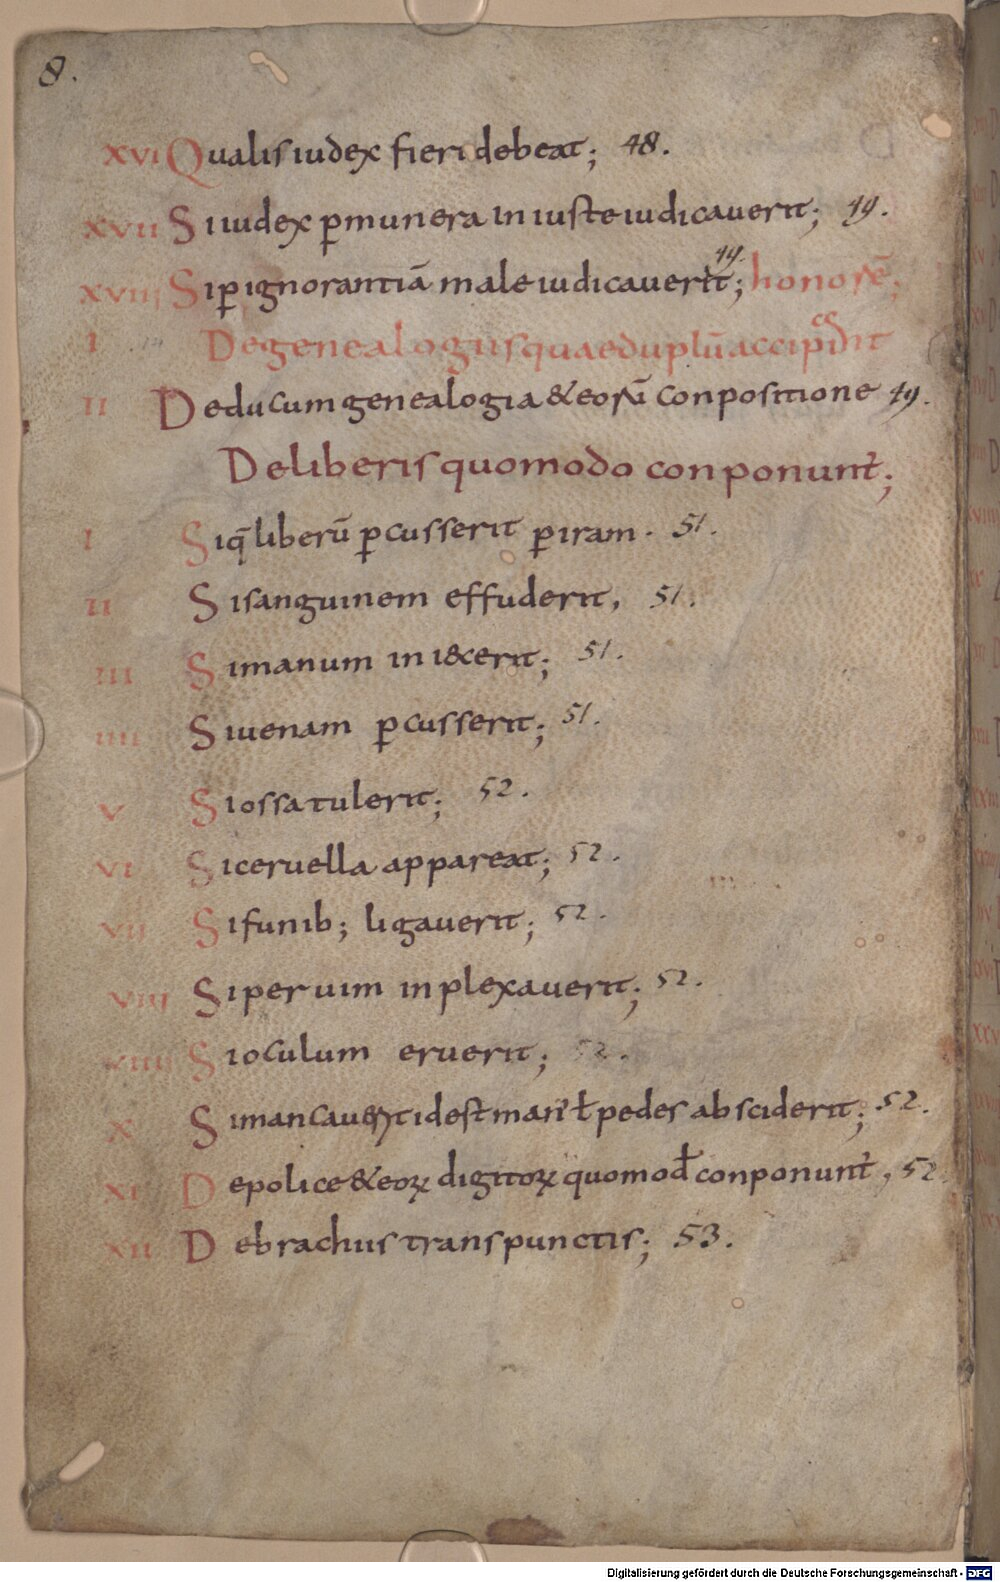 8.
XVI Qualis iudex fieri debeat; 48.
XVII Si iudex p̱ munera in iuste iudicauerit; 49.
XVIII Si p̱ ignorantiā male iudicauerit; 49. honorē;
I De genealogiis quae duplū accip̱ dīt
II De ducum genealogia & eorū conpositione 49.
De liberis quomodo conponunt̄;
I Si q̄ liberū p̱cusserit p̱ iram. 51.
II Si sanguinem effuderit, 51.
III Si manum in i&cerit; 51.
IIII Si uenam p̱cusserit; 51.
V Si ossa tulerit; 52.
VI Si ceruella appareat; 52.
VII Si funib; ligauerit; 52.
VIII Si per uim inplexauerit; 52.
VIIII Si oculum eruerit; 52.
X Si mancauerit id est man' ł pedes absciderit; 52.
XI De pollice & eoꝝ digitoꝝ quomod̄ conponunt̄, 52
XII De brachiis transpunctis; 53.
Digitalisierung gefördert durch die Deutsche Forschungsgemeinschaft - DFG